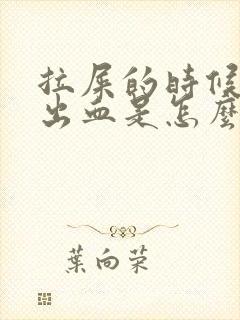 拉屎的時候
出血是怎麼
葉向荣